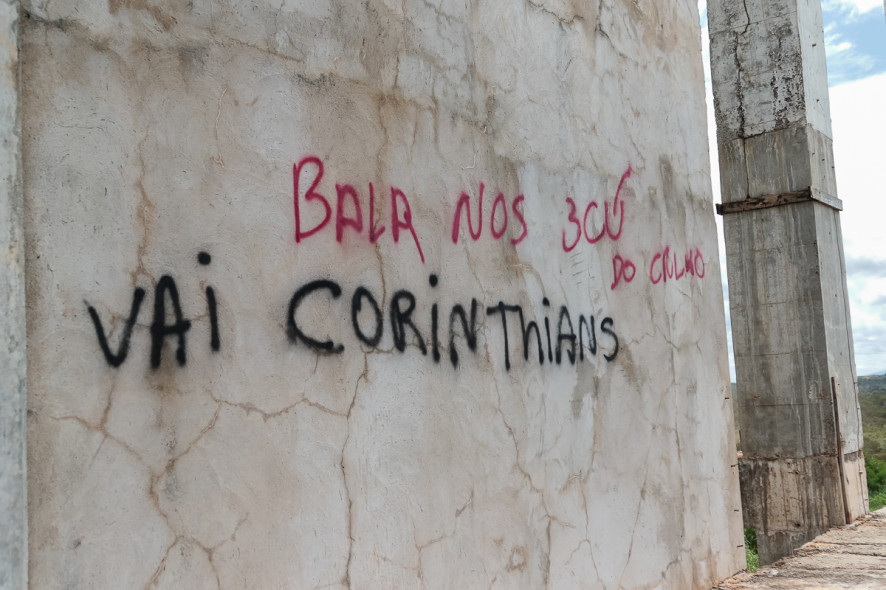 BALA NOS 3CÚ
DO
VAI CORINThiANS